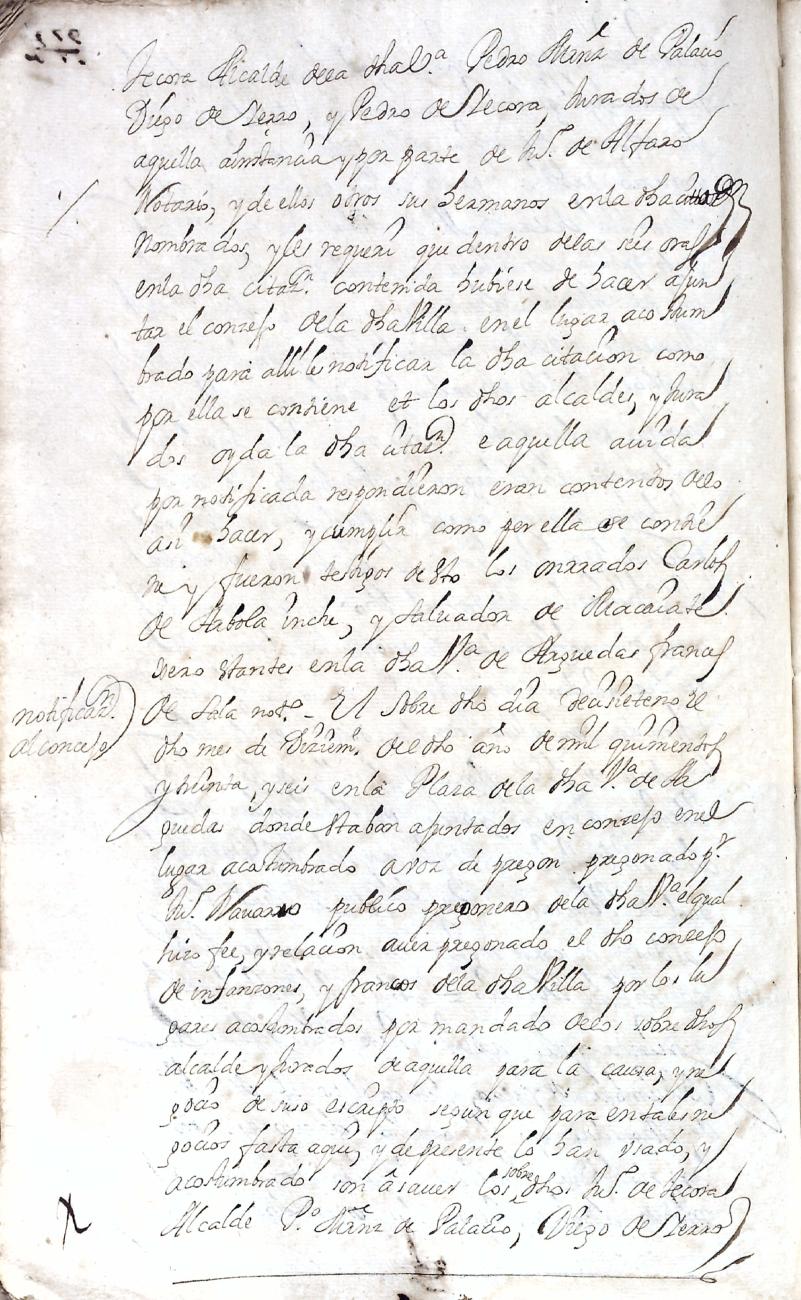 Jecora Alcalde dela dha V.ª Pedro Mrnz de Palacio
Diego de Sierro, y Pedro de Jecora, Jurados de
aquella a instancia y por parte de Ju.º de Alfaro
Notario, y de ellos otros sus hermanos en la dha
Nombrados, y les requeri que dentro delas seis oras
enla dha citaz.n contenida hubiese de hacer ajun
tar el conzejo dela dha Villa en el lugar acostum
brado para alli les notificar la dha citacion como
por ella se contiene et los dhos alcaldes, y Jura
dos oyda la dha citaz.n e aquella auida
por notificada respondieron eran contentos dello
asi hacer, y cumplir como por ella se contie
ne y fueron testigos desto los onrrados Carlos
de y Saluador de
stantes enla dha V.ª de Arguedas frances
de Sala not.º El sobre dho dia decisieteno del
dho mes de Diziem.e del dho año de mil quinientos
y treinta, y seis en la Plaza de la dha V.ª de Ar
guedas donde staban ajuntados en conzejo enel
lugar acostumbrado a voz de pregon pregonado p.r
Ju.º Nauarro publico pregonero dela dha V.ª el qual
hizo fee, y relacion auer pregonado el dho conzejo
de infanzones, y francos dela dha Villa por los lu
gares acostumbrados por mandado delos sobredhos
alcalde y Jurados de aquella para la causa, y ne
gocio de suso escripto segun que para en tales ne
gocios fasta aqui, y de presente lo han vsado, y
acostumbrado son â sauer los sobre dhos Ju.º de Jecora
Alcalde P.º Mrnz de Palacio, Diego de Sierro
notificaz.n
al conzejo